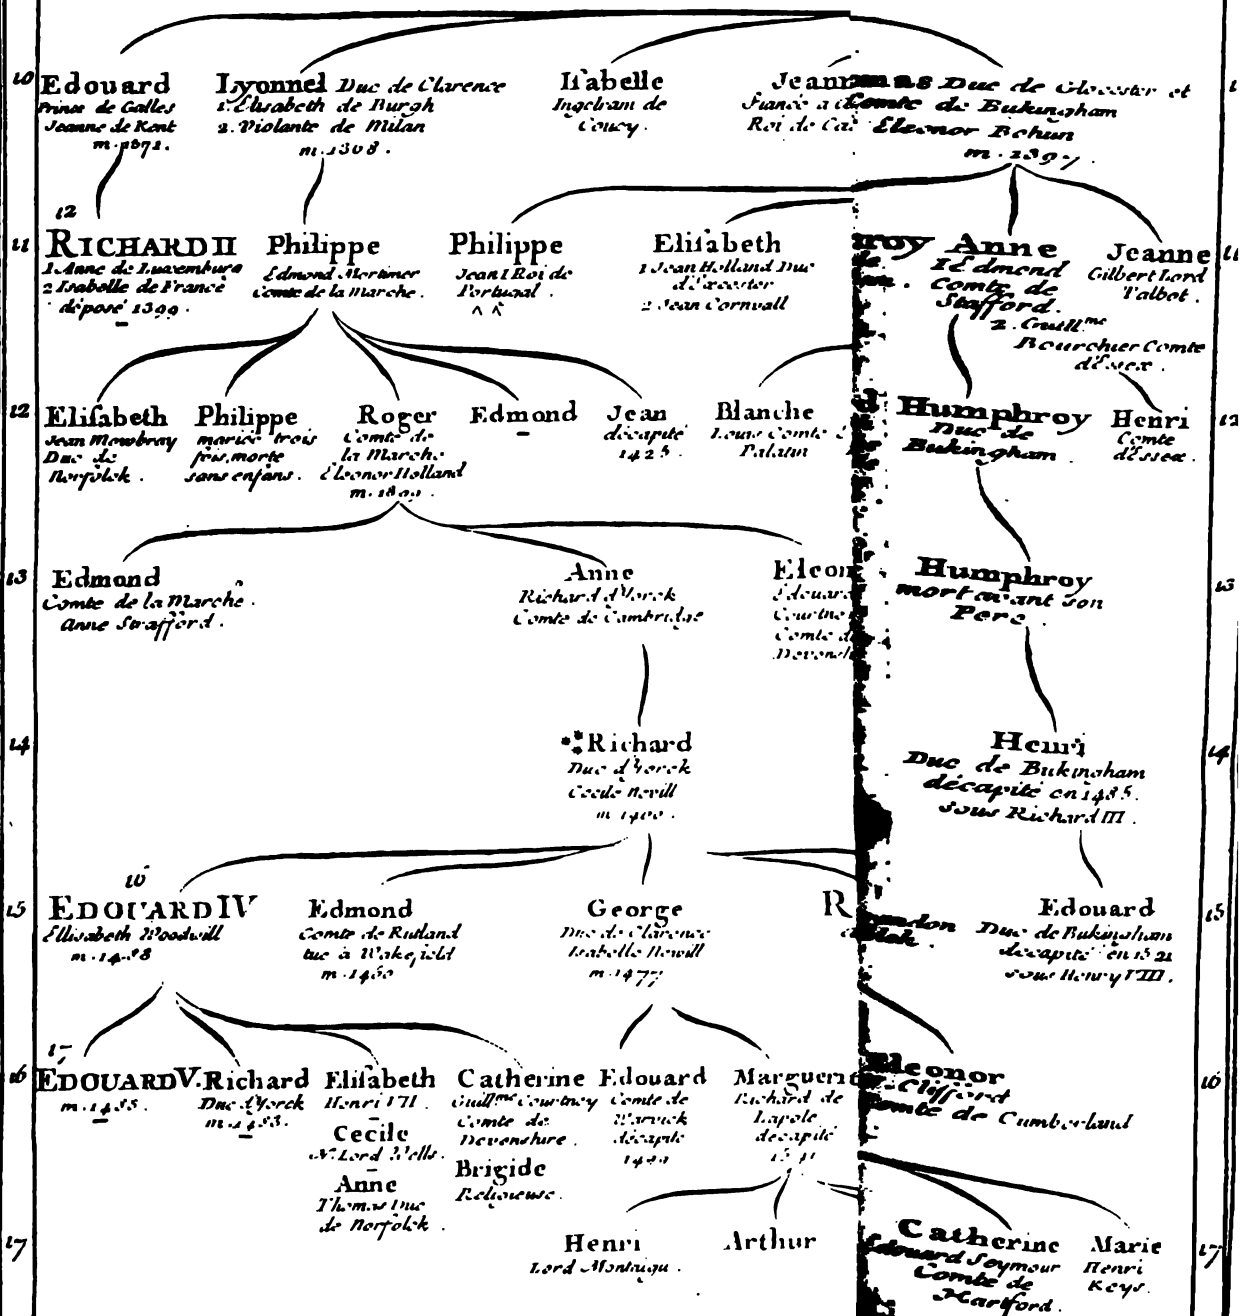 10
Edouard
Prince de Galles
Jeanne de Kent
Lyonnel Duc de Clarence
1. Elisabeth de Burgh
2. Violante de Milan
Isabelle
Ingelram de
Coucy.
Jean
Fiancée a
Roi de Cas
mas Duc de Glocester et
Comte de Bukingham
Eleonor Bohun
m. 1397.
11
12
RICHARD II
1. Anne de Luxemburg
2 Isabelle de France
déposé 1399.
Philippe
Edmond Mortimer
Comte de la Marche.
Philippe
Jean I Roi de
Portugal.
Elisabeth
1 Jean Holland Duc
d'Excester
2 Jean Cornwall
roy
Anne
1 Edmond
Comte de
Stafford.
2. Guill.me
Bourchier Comte
d'Essex.
Jeanne
Gilbert Lord
Talbot.
11
12
Elisabeth
Jean Mowbray
Duc de
Norfolck.
Philippe
mariée trois
fois, morte
sans enfans.
Roger
Comte de
la Marche
Eleonor Holland
Edmond
Jean
décapité
Blanche
Louis Comte
Palatin
Humphroy
Duc de
Bukingham.
Henri
Comte
d'Essex.
12
13
Edmond
Comte de la Marche.
Anne Strafford.
Anne
Richard d'Yorck
Comte de Cambridge
Eleon
Edouard
Courtne
Comte d
Devonsh
Humphroy
mort avant son
Pere.
13
14
Richard
Duc d'Yorck
Cecile Nevill
Henri
Duc de Bukingham
décapité en
sous Richard III.
14
15
EDOUARD IV
Ellisabeth Woodwill
Edmond
Comte de Rutland
tué à Wakefield
m. 1460
George
Duc de Clarence
Isabelle Newill
m. 1477
R
Edouard
Duc de Bukingham
décapité en 1521
sous Henry VIII.
15
16
17
EDOUARD V.
Richard
Duc d'Yorck
Elisabeth
Henri VII.
Cecile
N. Lord Wells.
Anne
Thomas Duc
de Norfolck.
Catherine
Guill.me Courtney
Comte de
Devonshire.
Brigide
Religieuse.
Edouard
Comte de
Warvick
décapité
Marguerit
Richard de
Lapole
décapité
Eleonor
Clifford
Comte de Cumberland
16
17
Henri
Lord Montaigu.
Arthur
Catherine
Edouard Seymour
Comte de
Hartford.
Marie
Henri
Keys.
17